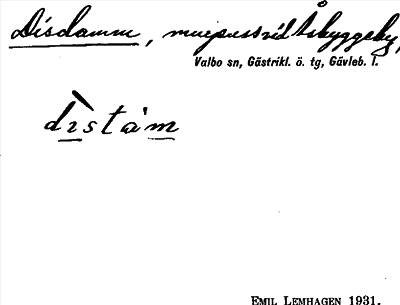 Disdamm, myrpuss vid Åbyggeby,
Valbo sn, Gästrikl. ö. tg, Gävleb. l.
dìstám
EMIL LEMHAGEN 1931.